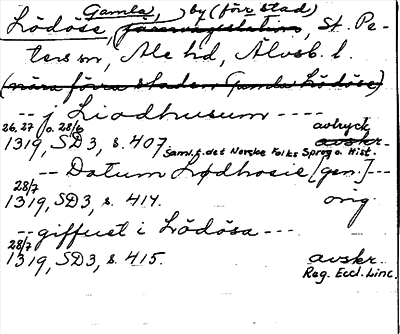 Gamla, by (för stad)
Lödöse, (järnvägsstation, St. Pe-
ters sn, Ale hd, Älvsb. l.
(nära förra staden Gamla Lödöse)
-- j Liodhusum ----
26, 27 o. 28/6 avtryck
1319, SD3, s. 407. avskr.
Saml. t. det Norske Folks Sprog o. Hist.
-- Datum Lødhosie [gen.] ---
28/7
1319, SD3, s. 414. orig.
-- giffuet i Lödösa ---
28/7
1319, SD3, s. 415. avskr.
Reg. Eccl. Linc.